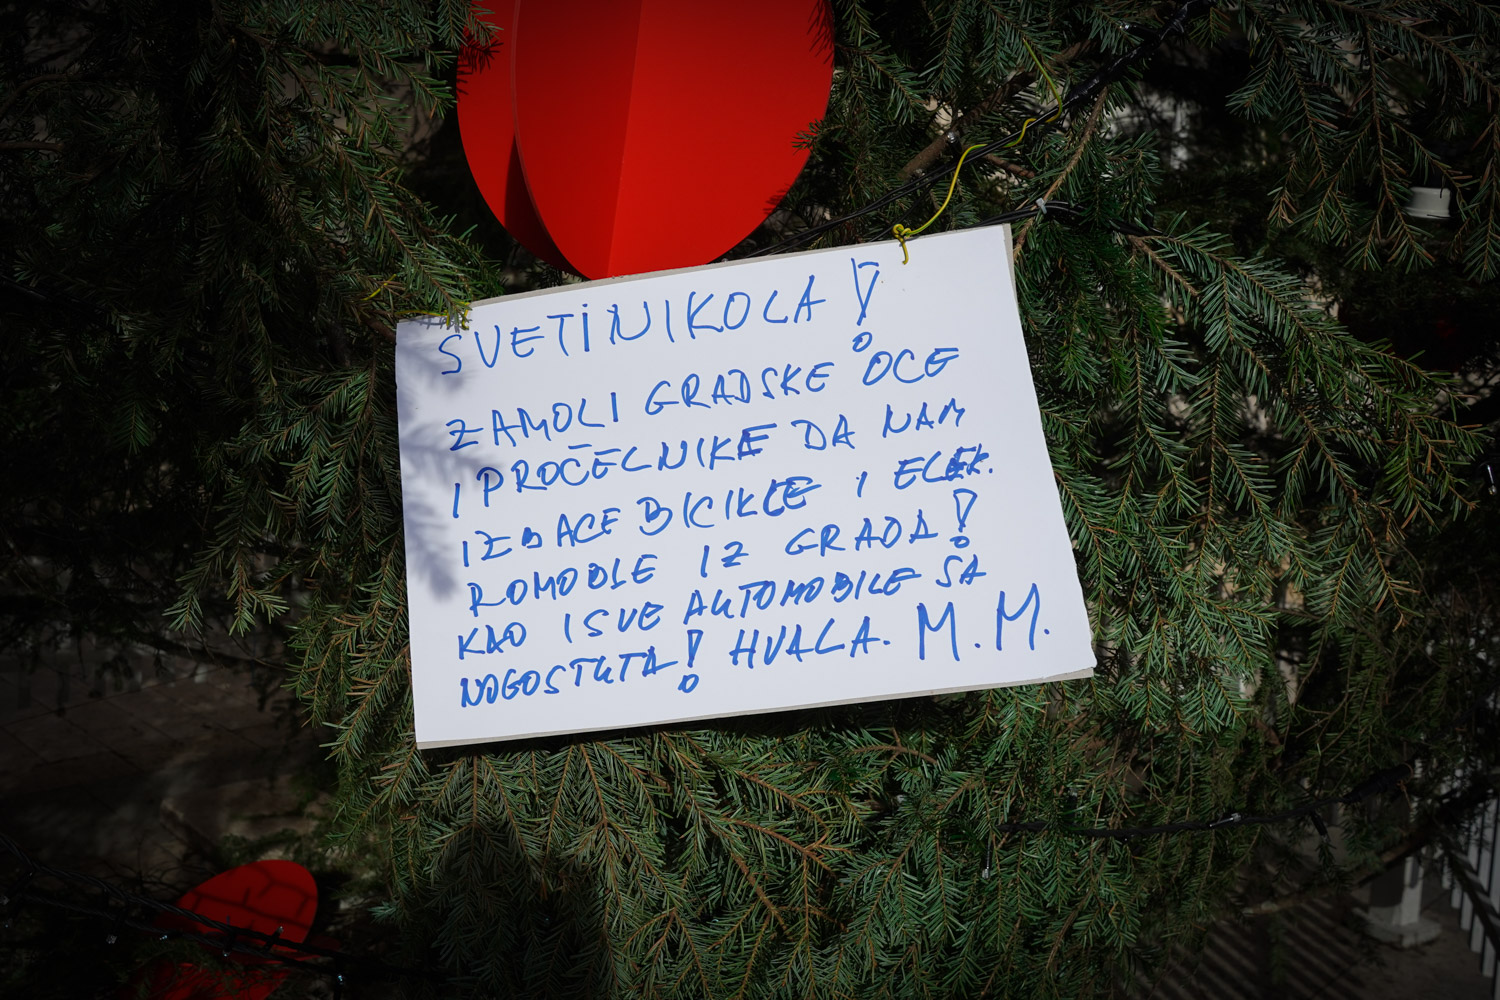 SVETI NIKOLA!
ZAMOLI GRADSKE OCE
I PROČELNIKE DA NAM
IZBACE BICIKLE I ELEK.
ROMOBILE IZ GRADA!
KAO I SVE AUTOMOBILE SA
NOGOSTUTA! HVALA. M.M.